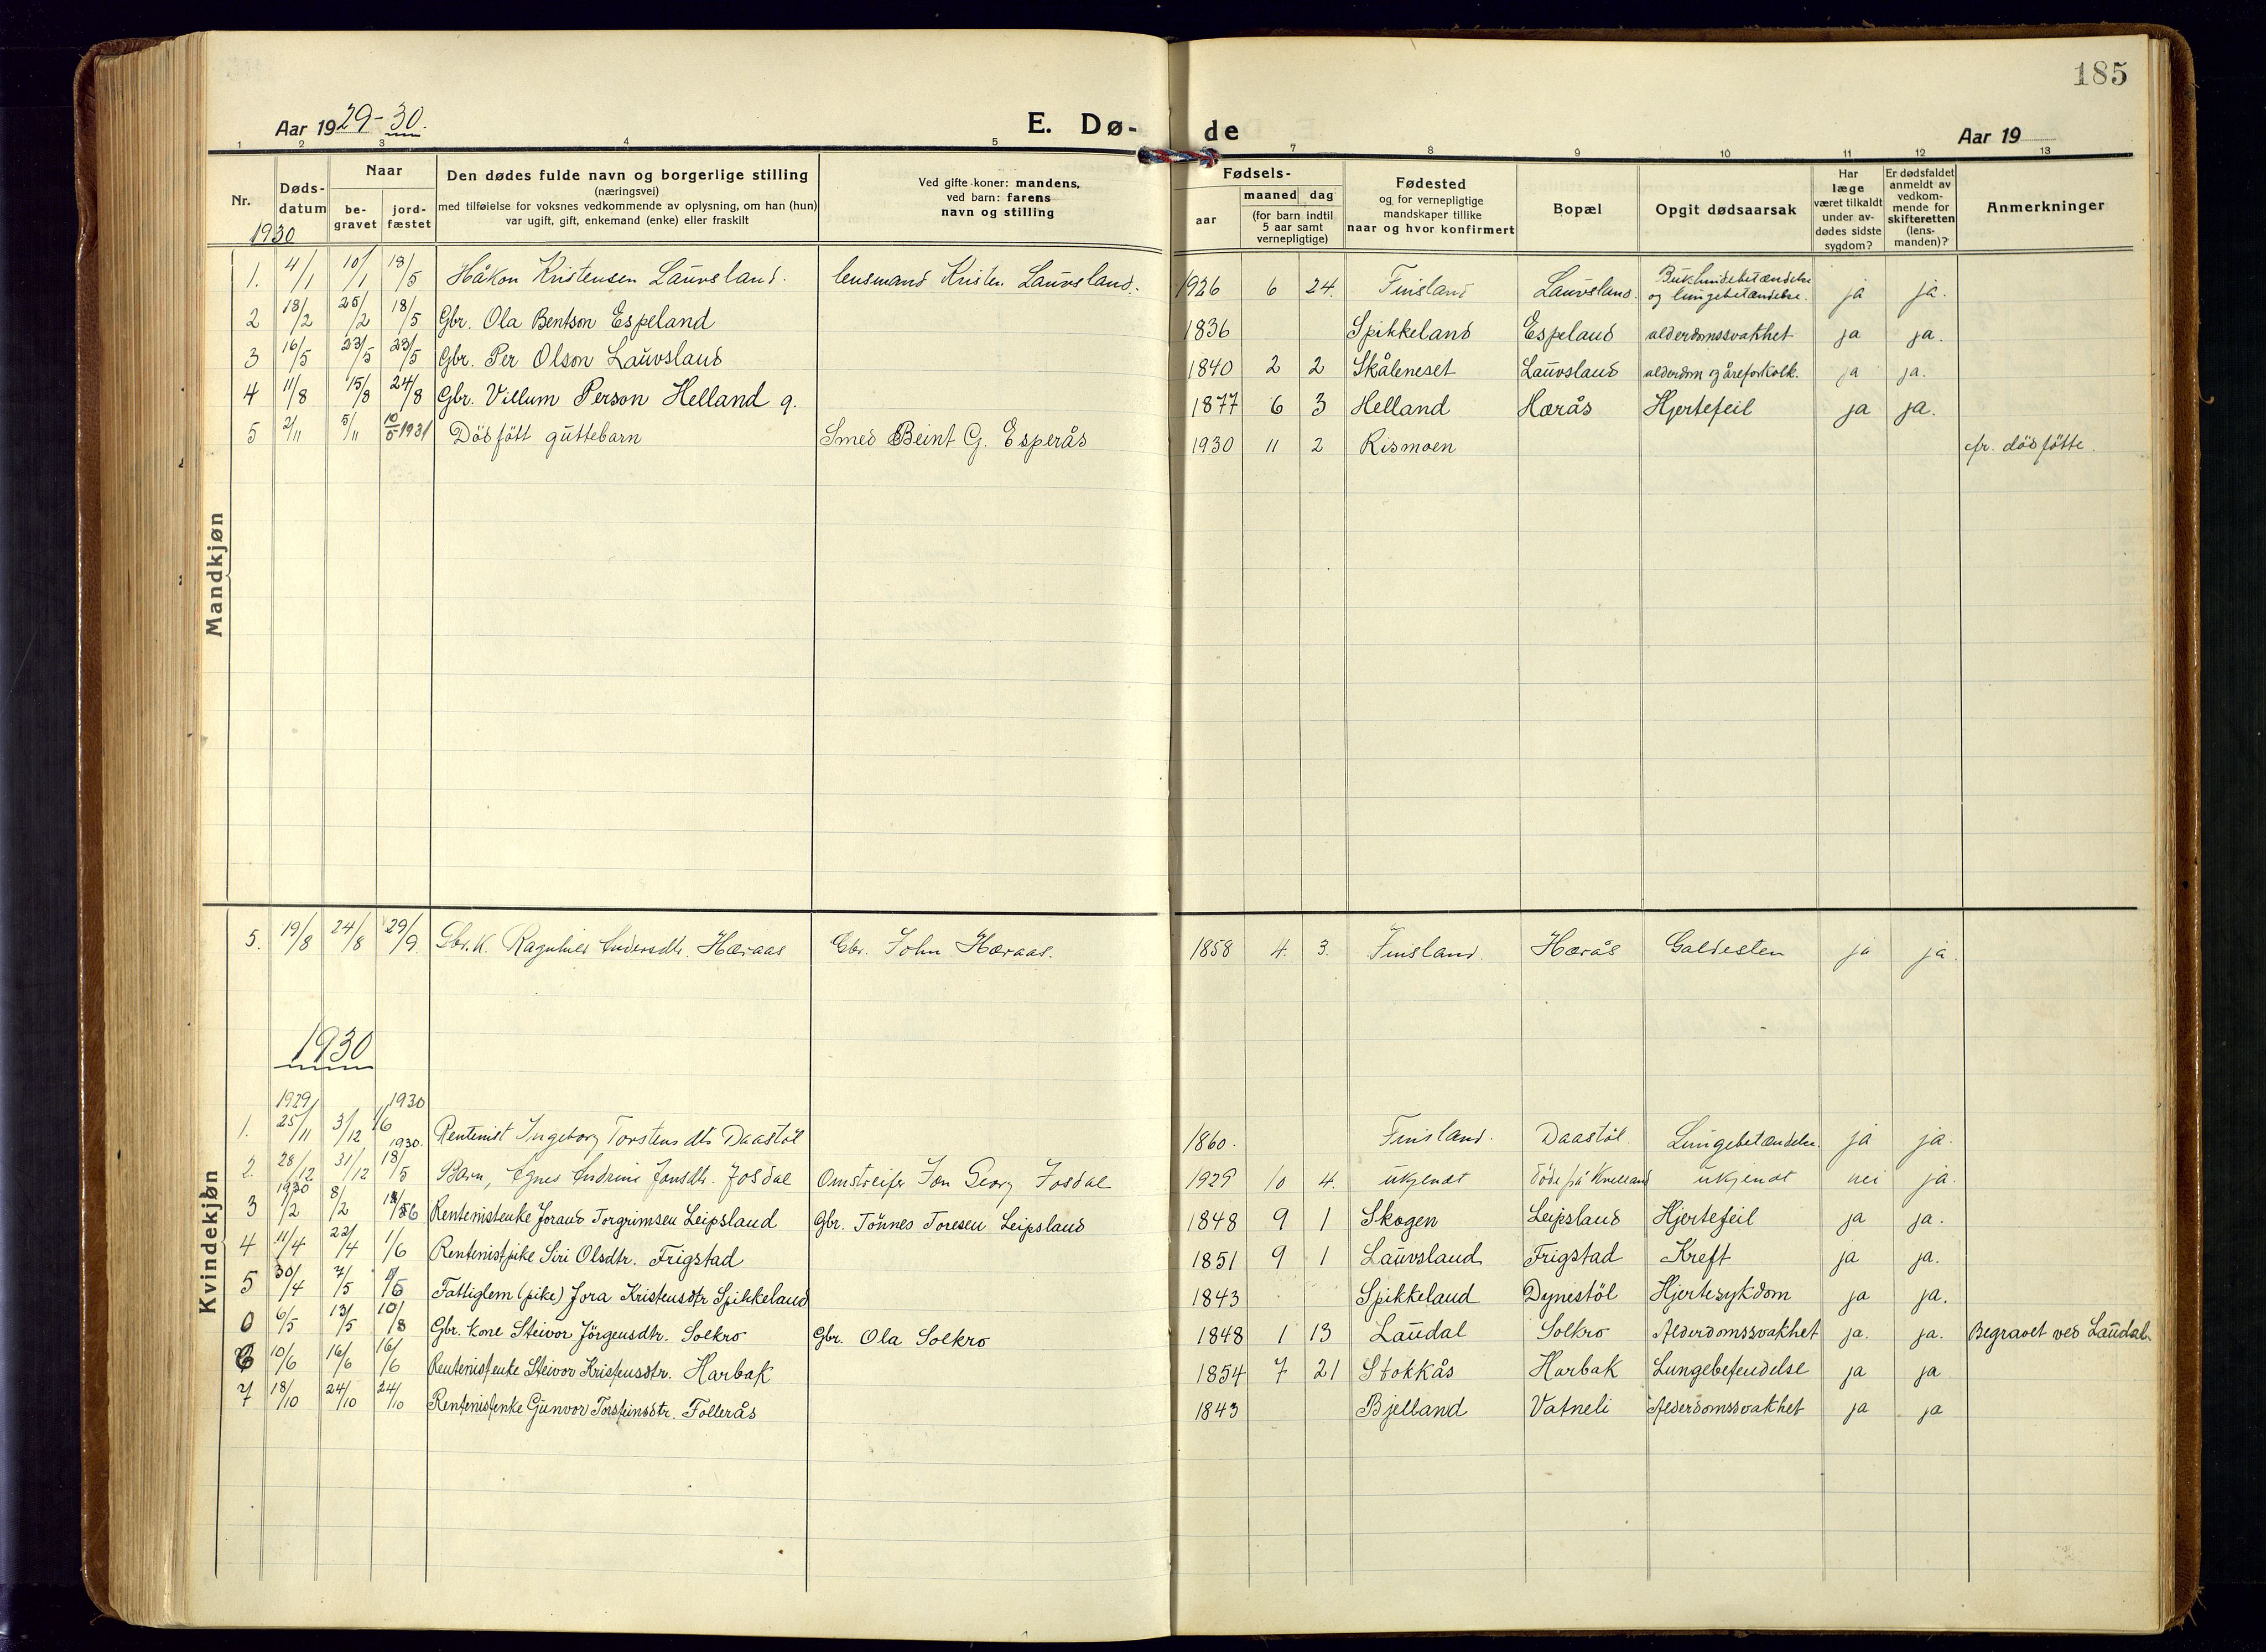 185
Aar 1929-30.
E. Dø-de
Aar 19
1 2 3 4 5 7 8 9 10 11 12 13
Nr.
Døds-
datum
1930
Naar
be-
gravet
jord-
fæstet
Den dødes fulde navn og borgerlige stilling
(næringsvei)
med tilføielse for voksnes vedkommende av oplysning, om han (hun)
var ugift, gift, enkemand (enke) eller fraskilt
Ved gifte koner: mandens,
ved barn: farens
navn og stilling
Fødsels-
aar
maaned dag
(for barn indtil
5 aar samt
vernepligtige)
Fødested
og for vernepligtige
mandskaper tillike
naar og hvor konfirmert
Bopæl
Opgit dødsaarsak
Har
læge
været tilkaldt
under av-
dødes sidste
sygdom?
Er dødsfaldet
anmeldt av
vedkom-
mende for
skifteretten
(lens-
manden)?
Anmerkninger
Mandkjøn
1. 4/1 10/1 18/5 Håkon Kristensen Lauvsland. lensmand Kristen Lauvsland. 1926 6 24. Finsland Lauvsland. Bukhindebetændelse
og lungebetændelse. ja ja.
2 18/2 25/2 18/5 Gbr. Ola Bentson Espeland 1836 Spikkeland Espeland alderdomssvakhet ja ja.
3 16/5 23/5 23/5 Gbr. Per Olson Lauvsland 1840 2 2 Skåleneset Lauvsland alderdom og åreforkalk. ja ja.
4 11/8 15/8 24/8 Gbr. Villum Person Helland g. 1877 6 3 Helland Hærås Hjertefeil ja ja.
5 2/11 5/11 10/5 1931 Dödfött guttebarn Smed Beint G. Esperås 1930 11 2 Rismoen fr. dödfötte.
Kvindekjøn
5. 19/8 24/8 29/9. Gbr.k. Ragnhild Andersdtr. Hæraas Gbr. John Hæraas. 1858 4. 3. Finsland. Hærås Galdesten ja ja.
1930
1929 1930
1. 25/11 3/12 1/6 Rentenist Ingeborg Torstensdtr Daastöl 1860. Finsland. Daastöl. Lungebetændelse ja ja.
1930.
2. 28/12 31/12 18/5 Barn, Agnes Andrine Jonsdtr. Josdal Omstreifer Jon Georg Josdal 1929 10 4. ukjendt döde på ukjendt nei ja.
1930
3 1/2 8/2 Rentenistenke Joraud Torgrimsen Leipsland Gbr. Tönnes Toresen Leipsland 1848 9 1 Skogen Leipsland Hjertefeil ja ja.
4 11/4 22/4 1/6 Rentenistpike Siri Olsdtr. Frigstad 1851 9 1 Lauvsland Frigstad Kreft ja ja.
5 30/4 7/5 Fattiglem (pike) Jora Kristensdtr Spikkeland 1843 Spikkeland Dynestöl Hjertesykdom ja ja.
0 6/5 13/5 10/8 Gbr. kone Steivor Jörgensdtr. Solkro Gbr. Ola Solkro 1848 1 13 Laudal Solkro Alderdomssvakhet ja. ja. Begravet ved Laudal.
6 10/6 16/6 16/6 Rentenistenke Steivor Kristensdtr. Harbak 1854 7 21 Stokkås Harbak Lungebetendelse ja ja
7 18/10 24/10 24/10 Rentenistenke Gunvor Torsteinsdtr. Follerås 1843 Bjelland Vatneli Alderdomssvakhet ja ja